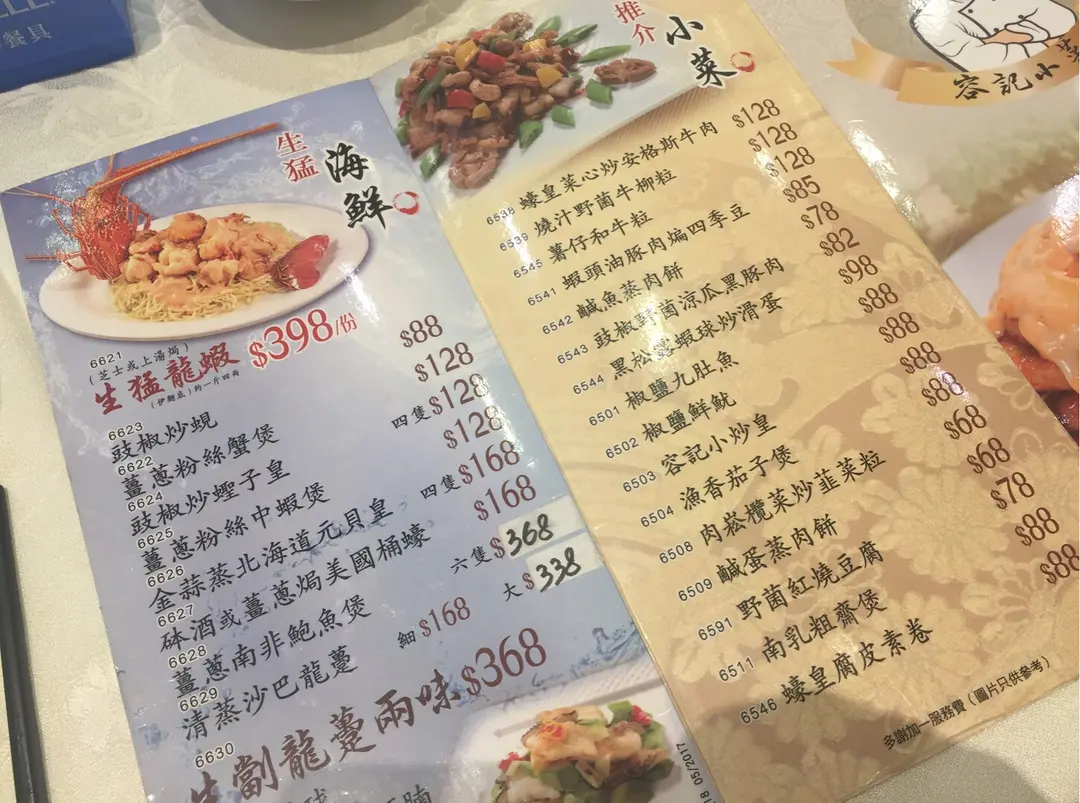 餐具
生猛
海鮮
6621
(芝士或上湯焗)
生猛龍蝦 $398/份
(伊麵底) 約一斤四両
6623
豉椒炒蜆 $88
6622
薑蔥粉絲蟹煲 $128
6624
豉椒炒蟶子皇 四隻$128
6625
薑蔥粉絲中蝦煲 $128
6626
金蒜蒸北海道元貝皇 四隻$168
6627
砵酒或薑蔥焗美國桶蠔 $168
6628
薑蔥南非鮑魚煲 六隻$368
6629
清蒸沙巴龍躉 細$168 大$338
6630
生劏龍躉兩味 $368
推介
小菜
6538 蠔皇菜心炒安格斯牛肉 $128
6539 燒汁野菌牛柳粒 $128
6545 薯仔和牛粒 $128
6541 蝦頭油豚肉煸四季豆 $85
6542 鹹魚蒸肉餅 $78
6543 豉椒野菌涼瓜黑豚肉 $82
6544 黑松露蝦球炒滑蛋 $98
6501 椒鹽九肚魚 $88
6502 椒鹽鮮魷 $88
6503 容記小炒皇 $88
6504 漁香茄子煲 $88
6508 肉崧欖菜炒韭菜粒 $68
6509 鹹蛋蒸肉餅 $68
6591 野菌紅燒豆腐 $78
6511 南乳粗齋煲 $88
6546 蠔皇腐皮素卷 $88
多謝加一服務費 (圖片只供參考)
05/2017
容記小